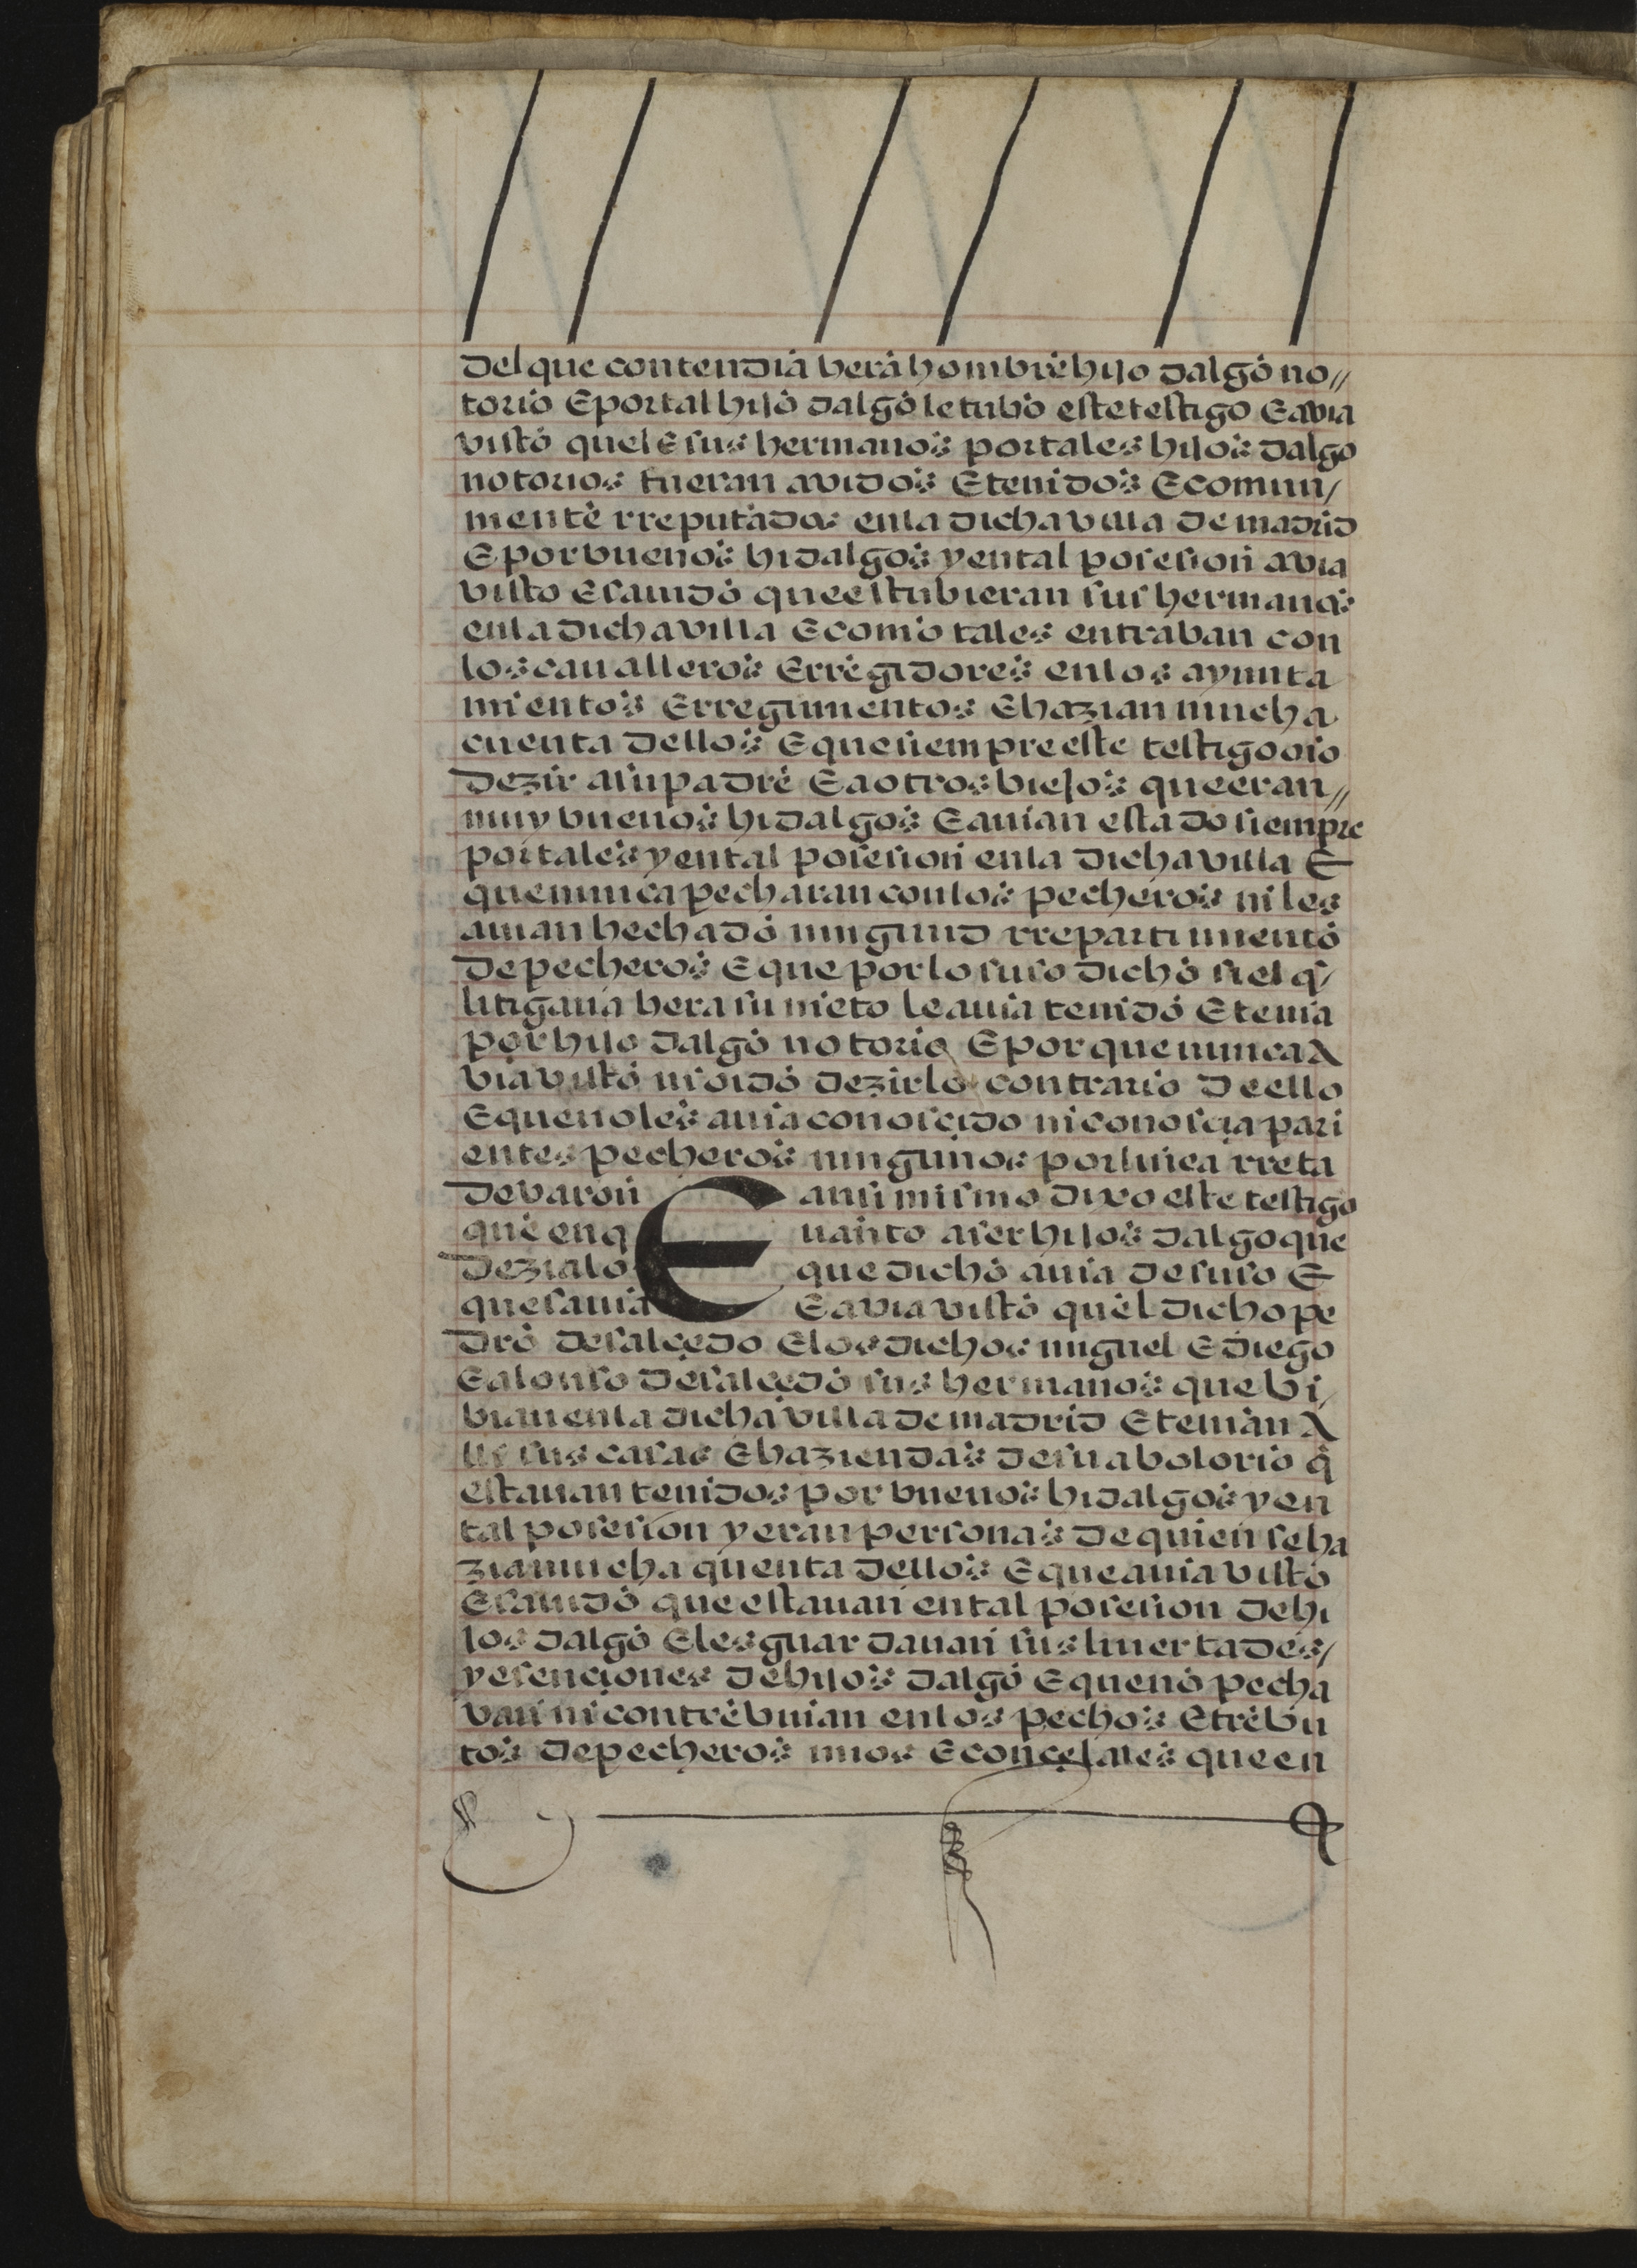 del que contendia hera hombre hijo dalgo no//
torio E por tal hijo dalgo le tubo este testigo E avia
visto quel E sus hermanos por tales hijos dalgo
notorios fueran avidos E tenidos E comun/
mente rreputados en la dicha villa de madrid
E por buenos hidalgos y en tal posesion avia
visto E sauido que estubieran sus hermanos
en la dicha villa E como tales entraban con
los caualleros E rregidores en los ayunta
mientos E rregimientos E hazian mucha
cuenta dellos E que siempre este testigo oio
dezir a su padre E a otros biejos que eran//
muy buenos hidalgos E auian estado siempre
por tales y en tal posesion en la dicha villa E
que nunca pecharan con los pecheros ni les
auian hechado ningund rrepartimiento
de pecheros E que por lo suso dicho si el q/
litigaua hera su nieto le auia tenido E tenia
por hijo dalgo notorio E por que nunca A
via visto ni oido dezir lo contrario de ello
E que no les auia conosçido ni conosçia pari
entes pecheros ningunos por linea rreta
de varon E ansi mismo dixo este testigo
que en q uanto a ser hijos dalgo que
dezia lo que dicho auia de suso E
que sauia E avia visto quel dicho pe
dro de salçedo E los dichos miguel E diego
E alonso de salçedo sus hermanos que bi/
bian en la dicha villa de madrid E tenian A
lli sus casas E haziendas de su abolorio q̃
estauan tenidos por buenos hidalgos y en
tal posesion y eran personas de quien se ha
zia mucha quenta dellos E que auia visto
E sauido que estauan en tal posesion de hi
jos dalgo E les guardauan sus liuertades/
y esençiones de hijos dalgo E que no pecha
van ni contrebuian en los pechos E trebu
tos de pecheros mios E conçejales que en